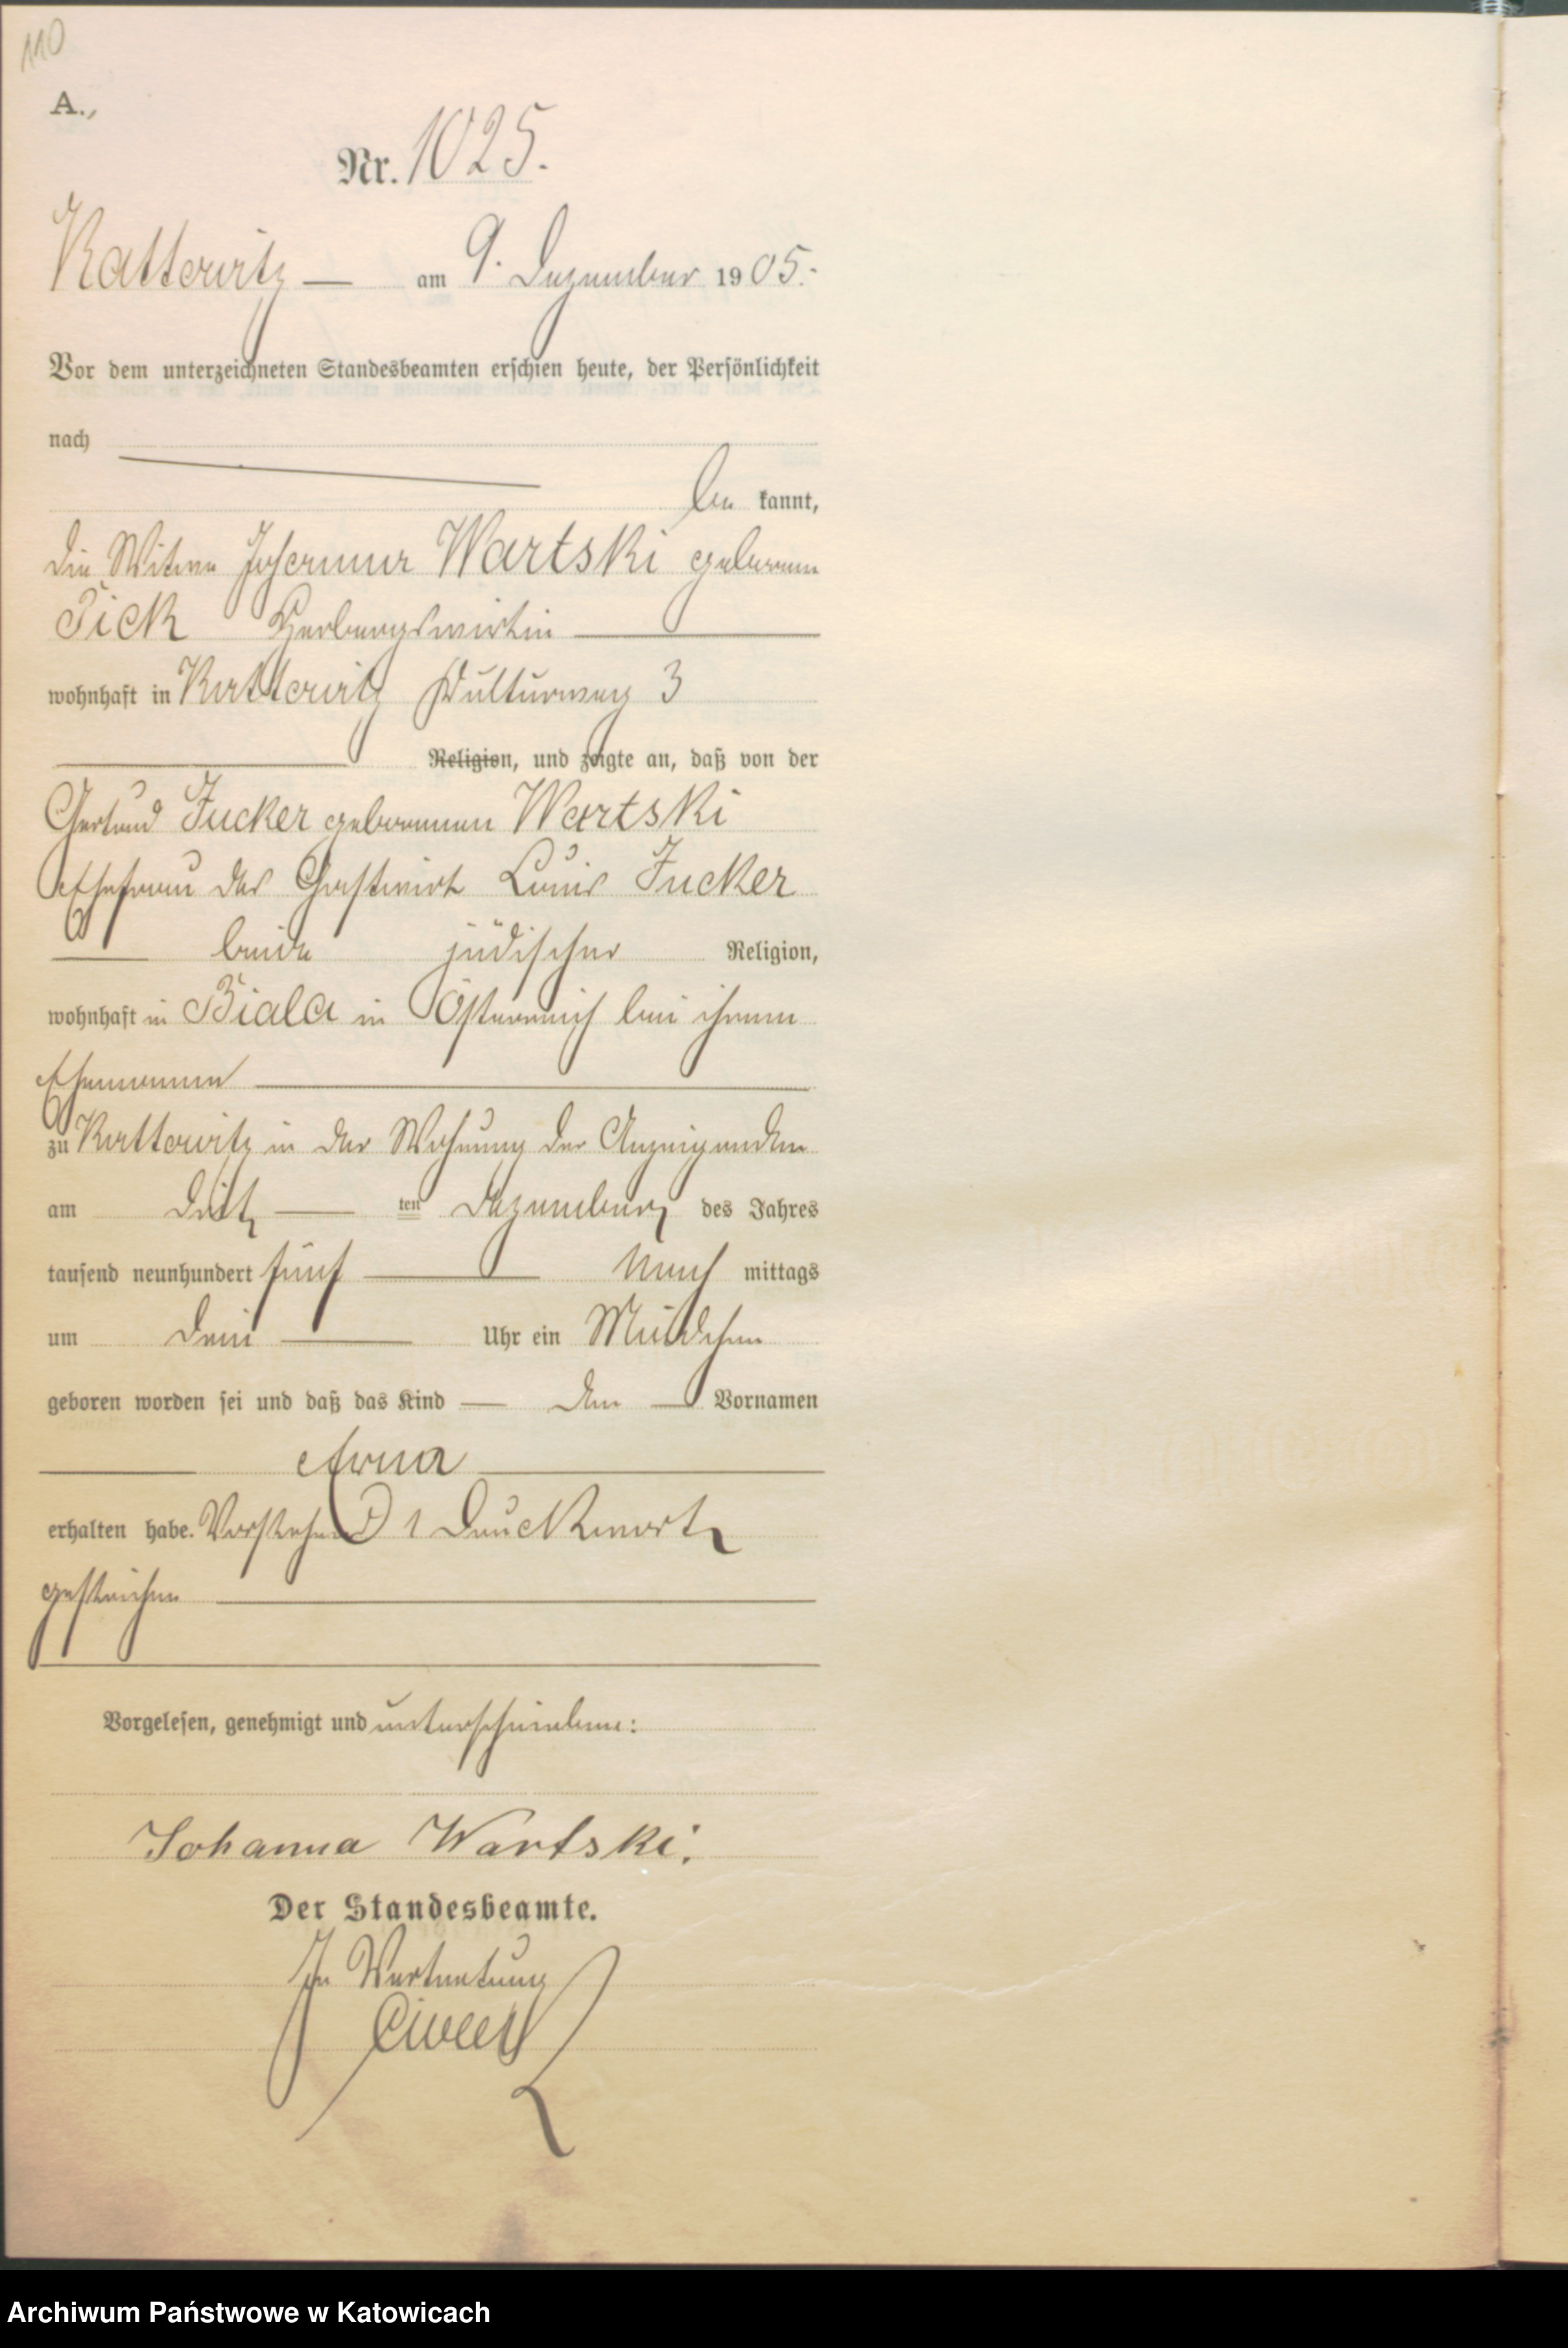 110
A.,
Nr. 1025.
Kattowitz — am 9. Dezember 1905.
Vor dem unterzeichneten Standesbeamten erschien heute, der Persönlichkeit
nach
be kannt,
die Witwe Johanna Wartski geborene
Pick Herbergswirtin
wohnhaft in Kattowitz Kulturweg 3
Religion, und zeigte an, daß von der
Gertrud Zucker geborenen Wartski
Ehefrau des Gastwirt Louis Zucker
beide jüdischer Religion,
wohnhaft in Biala in Österreich bei ihrem
Ehemanne
zu Kattowitz in der Wohnung der Anzeigenden
am dritten Dezember des Jahres
tausend neunhundert fünf Nach mittags
um drei Uhr ein Mädchen
geboren worden sei und daß das Kind — den — Vornamen
Erna
erhalten habe. Vorstehend 1 Druckwort
gestrichen
Vorgelesen, genehmigt und unterschrieben:
Johanna Wartski.
Der Standesbeamte.
In Vertretung
Archiwum Państwowe w Katowicach